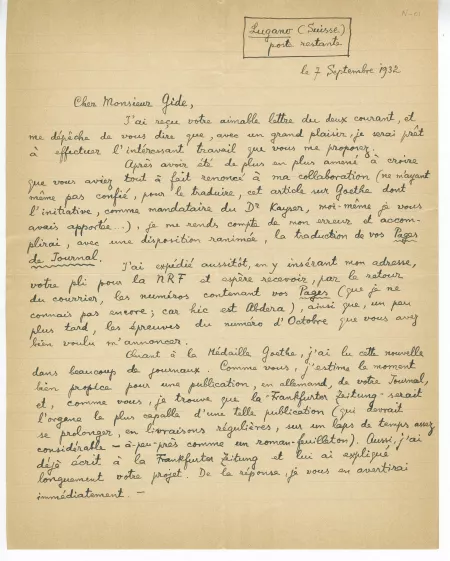 Lugano (Suisse)
poste restante
le 7 Septembre 1932
Cher Monsieur Gide,
J'ai reçu votre aimable lettre du deux courant, et
me dépêche de vous dire que, avec un grand plaisir, je serai prêt
à effectuer l'intéressant travail que vous me proposez.
Après avoir été de plus en plus amené à croire
que vous aviez tout à fait renoncé à ma collaboration (ne m'ayant
même pas confié, pour le traduire, cet article sur Goethe dont
l'initiative, comme mandataire du Dr Kayser, moi-même je vous
avais apportée...), je me rends compte de mon erreur et accom-
plirai, avec une disposition ranimée, la traduction de vos Pages
de Journal.
J'ai expédié aussitôt, en y insérant mon adresse,
votre pli pour la NRF et espère recevoir, par le retour
du courrier, les numéros contenant vos Pages (que je ne
connais pas encore; car hic est Abdera), ainsi que, un peu
plus tard, les épreuves du numéro d'Octobre que vous avez
bien voulu m'annoncer.
Quant à la Médaille Goethe, j'ai lu cette nouvelle
dans beaucoup de journaux. Comme vous, j'estime le moment
bien propice pour une publication, en allemand, de votre Journal,
et, comme vous, je trouve que la Frankfurter Zeitung serait
l'organe le plus capable d'une telle publication (qui devrait
se prolonger, en livraisons régulières, sur un laps de temps assez
considérable - à-peu-près comme un roman-feuilleton). Aussi, j'ai
déjà écrit à la Frankfurter Zeitung et lui ai expliqué
longuement votre projet. De la réponse, je vous en avertirai
immédiatement. -